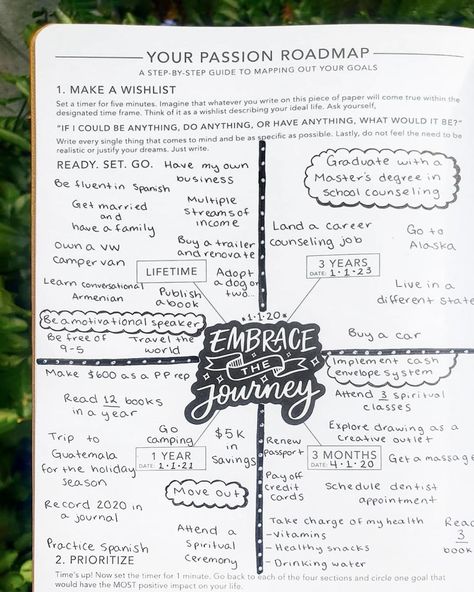 YOUR PASSION ROADMAP
A STEP-BY-STEP GUIDE TO MAPPING OUT YOUR GOALS
1. MAKE A WISHLIST
Set a timer for five minutes. Imagine that whatever you write on this piece of paper will come true within the
designated time frame. Think of it as a wishlist describing your ideal life. Ask yourself,
"IF I COULD BE ANYTHING, DO ANYTHING, OR HAVE ANYTHING, WHAT WOULD IT BE?"
Write every single thing that comes to mind and be as specific as possible. Lastly, do not feel the need to be
realistic or justify your dreams. Just write.
READY. SET. GO.
Have my own
business
Be fluent in Spanish
Get married
and
have a family
Multiple
streams of
income
Own a VW
camper van
Buy a trailer
and renovate
LIFETIME
Adopt
a dog or
two..
Learn conversational
Armenian
Publish
a book
Be a motivational speaker
Be free of
9-5
Travel the
world
Graduate with a
Master's degree in
school counseling
Land a career
counseling job
Go to
Alaska
3 YEARS
DATE: 1·1·23
Live in a
different state
Buy a car
*1·1·20*
EMBRACE
THE
Journey
Make $600 as a PP rep
Read 12 books
in a year
Trip to
Guatemala
for the holiday
season
Go
camping
$5k
in
Savings
1 YEAR
DATE: 1·1·21
Move out
Record 2020 in
a journal
Attend a
Spiritual
ceremony
Practice Spanish
Implement cash
envelope system
Attend 3 spiritual
classes
Explore drawing as a
creative outlet
Renew
passport
3 MONTHS
DATE: 4·1·20
Get a massage
Pay off
credit
cards
Schedule dentist
appointment
Take charge of my health
-Vitamins
-Healthy snacks
-Drinking water
Read
3
book
2. PRIORITIZE
Time's up! Now set the timer for 1 minute. Go back to each of the four sections and circle one goal that
would have the MOST positive impact on your life.